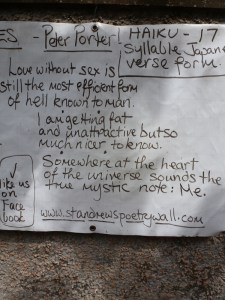 ES - Peter Porter
HAIKU - 17
syllable Japane
verse form.
Love without sex is
still the most efficient form
of hell known to man.
I am getting fat
and unattractive but so
much nicer to know.
Somewhere at the heart
of the universe sounds the
true mystic note: Me.
✓
like us
on
Face
book
www.standrewspoetrywall.com